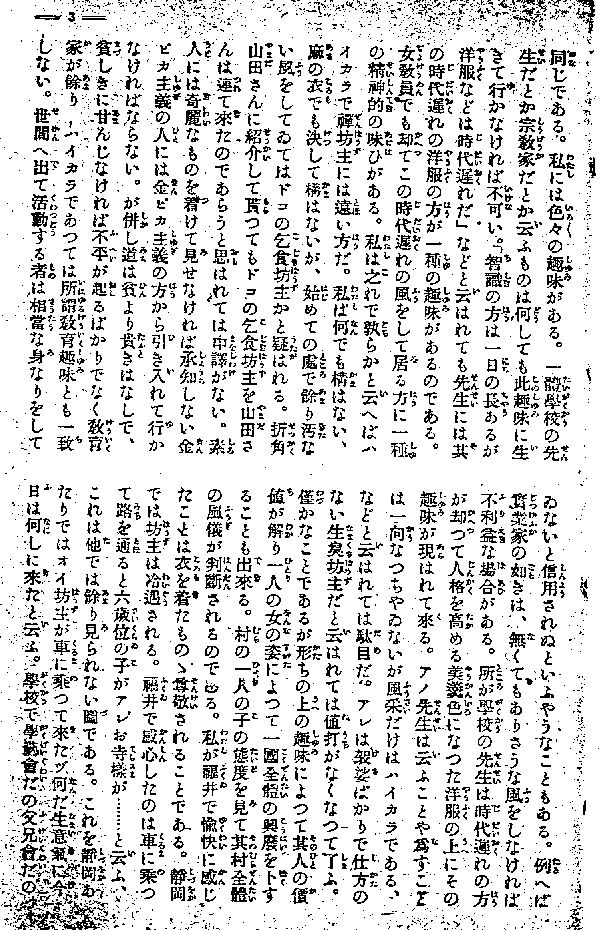 — 3 —
同じである。私には色々の趣味がある。一體學校の先
生だとか宗敎家だとか云ふものは何しても此趣味に生
きて行かなければ不可い。智識の方は一日の長あるが
洋服などは時代遅れだ」などと云はれても先生には其
の時代遅れの洋服の方が一種の趣味があるのである。
女敎員でも却てこの時代遅れの風をして居る方に一種
の精神的の味ひがある。私は之れで孰らかと云へばハ
イカラで禪坊主には遠い方だ。私は何でも構はない、
麻の衣でも決して構はないが、始めての處で餘り汚な
い風をしてゐてはドコの乞食坊主かと疑はれる。折角
山田さんに紹介して貰つてもドコの乞食坊主を山田さ
んは連て來たのであらうと思はれては申譯がない。素
人には奇麗なものを着けて見せなければ承知しない金
ピカ主義の人には金ピカ主義の方から引き入れて行か
なければならない。が併し道は貧より貴きはなしで、
貧しきに甘んじなければ不平が起るばかりでなく敎育
家が餘りハイカラであつては所謂敎育趣味とも一致
しない。世間へ出て活動する者は相當な身なりをして
ゐないと信用されぬといふやうなこともある。例へば
實業家の如きは、無くてもありさうな風をしなければ
不利益な場合がある。所が學校の先生は時代遅れの方
が却つて人格を高める羊羹色になつた洋服の上にその
趣味が現はれて來る。アノ先生は云ふことや爲すこと
は一向なつちやゐないが風采だけはハイカラである、
などと云はれては駄目だ。アレは袈裟ばかりで仕方の
ない生臭坊主だと云はれては値打がなくなつて了ふ。
僅かなことであるが形ちの上の趣味によつて其人の價
値が解り一人の女の姿によつて一國全體の興廢を卜す
ることも出來る。村の一人の子の態度を見て其村全體
の風儀が判斷されるのである。私が福井で愉快に感じ
たことは衣を着たものゝ尊敬されることである。靜岡
では坊主は冷遇される。福井で感心したのは車に乘つ
て路を通ると六歲位の子がアレお寺樣が……と云ふ、
これは他では餘り見られない圖である。これを靜岡あ
たりではオイ坊主が車に乘つて來たゾ何だ生意氣に今
日は何しに來たと云ふ。學校で學藝會だの父兄會だの